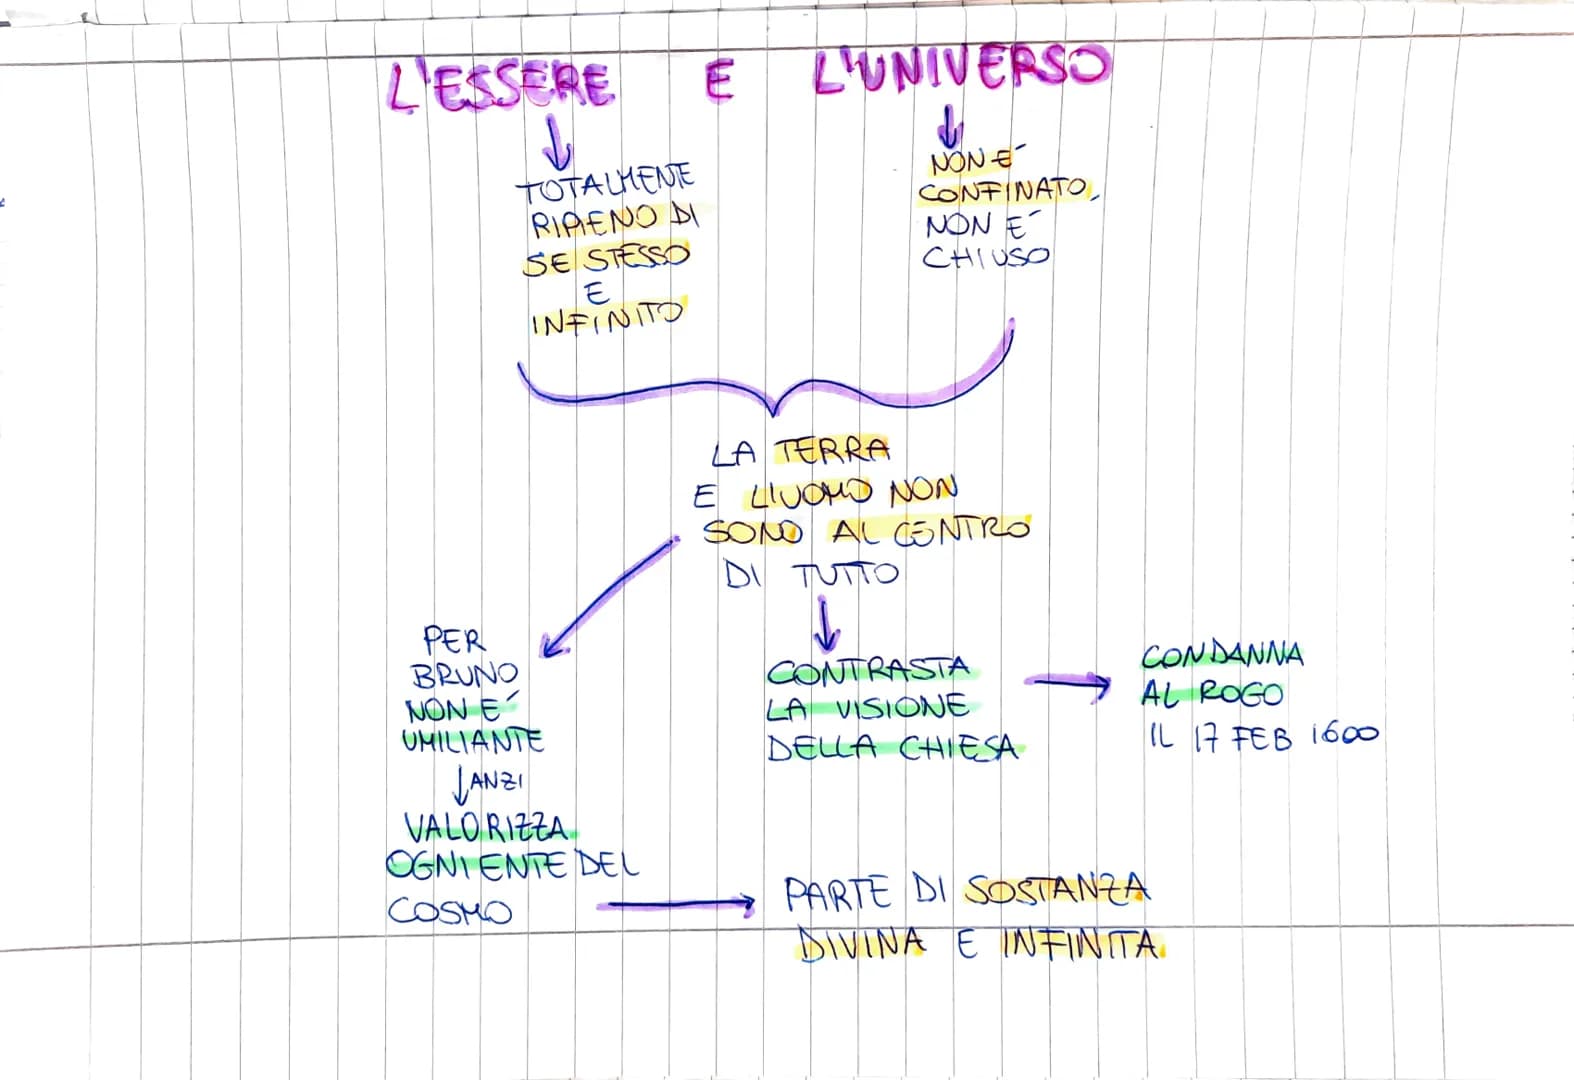 L'ESSERE E L'UNIVERSO
TOTALMENTE
RIPIENO DI
SE STESSO
E
INFINITO
NON E´
CONFINATO,
NON E´
CHIUSO
LA TERRA
E L'UOMO NON
SONO AL CENTRO
DI TUTTO
PER
BRUNO
NON E´
UMILIANTE
ANZI
VALORIZZA
OGNI ENTE DEL
COSMO
CONTRASTA
LA VISIONE
DELLA CHIESA
CONDANNA
AL ROGO
IL 17 FEB 1600
PARTE DI SOSTANZA
DIVINA E INFINITA